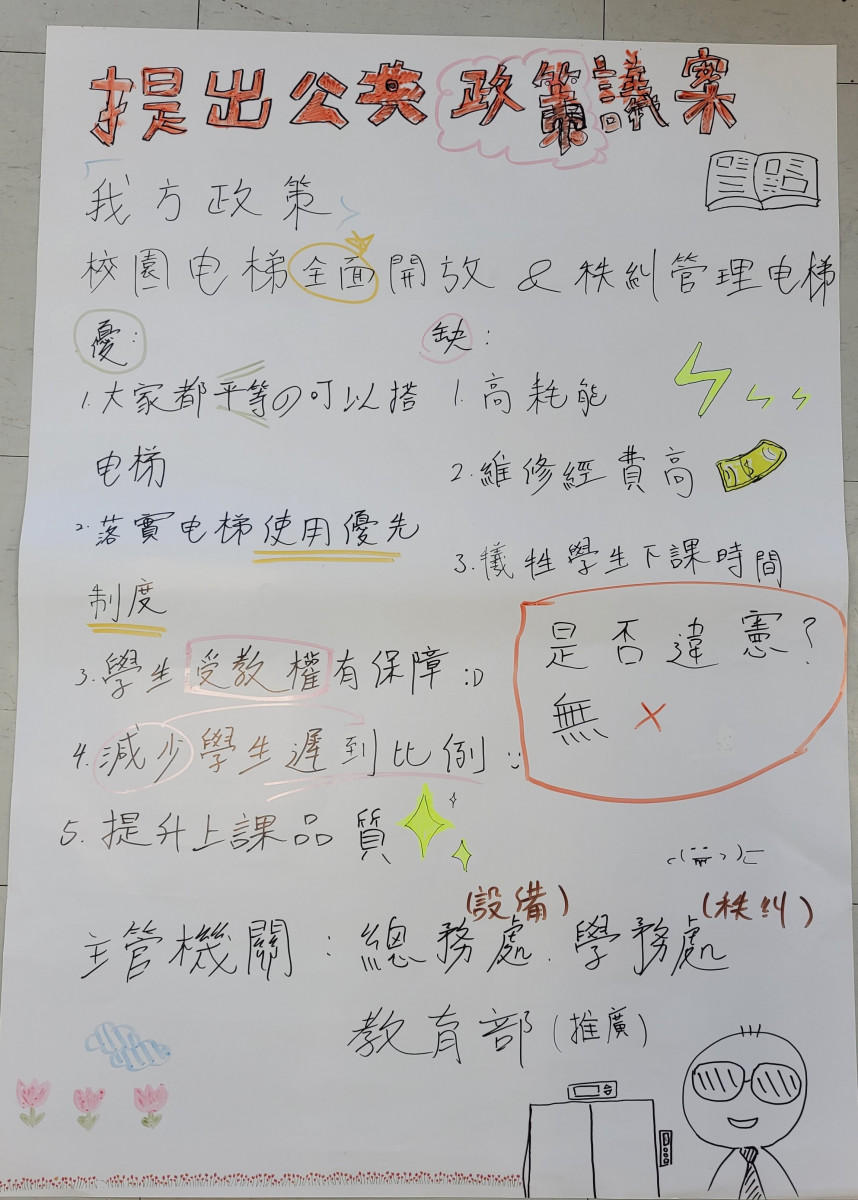 提出公共政策議案
「我方政策」
校園电梯全面開放 & 秩糾管理电梯
優:
1. 大家都平等の可以搭
电梯
2. 落實电梯使用優先
制度
3. 學生受教權有保障 :D
4. 減少學生遲到比例 :)
5. 提升上課品質
缺:
1. 高耗能
2. 維修經費高
3. 犧牲學生下課時間
是否違憲?
無 ×
(設備) (秩糾)
主管機關:總務處.學務處
教育部(推廣)